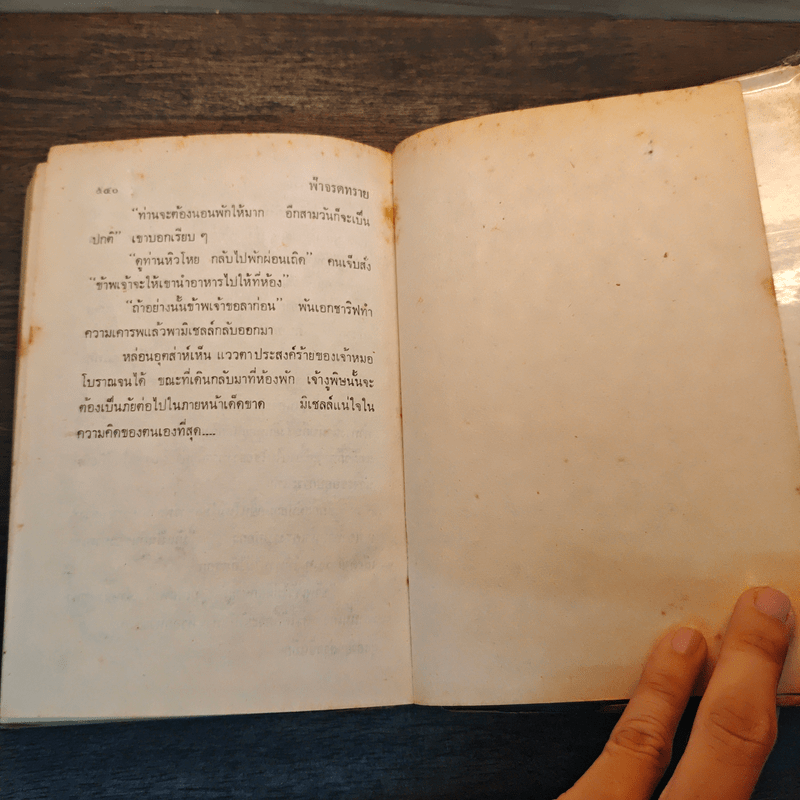 ๖๔๐ ฟ้าจรดทราย
“ท่านจะต้องนอนพักให้มาก อีกสามวันก็จะเป็น
ปกติ” เขาบอกเรียบ ๆ
“ดูท่านหิวโหย กลับไปพักผ่อนเถิด” คนเจ็บสั่ง
“ข้าพเจ้าจะให้เขานำอาหารไปให้ที่ห้อง”
“ถ้าอย่างนั้นข้าพเจ้าขอลาก่อน” พันเอกชาริฟทำ
ความเคารพแล้วพามิเชลล์กลับออกมา
หล่อนอุตส่าห์เห็น แววตาประสงค์ร้ายของเจ้าหมอ
โบราณจนได้ ขณะที่เดินกลับมาที่ห้องพัก เจ้างูพิษนั้นจะ
ต้องเป็นภัยต่อไปในภายหน้าเด็ดขาด มิเชลล์แน่ใจใน
ความคิดของตนเองที่สุด....